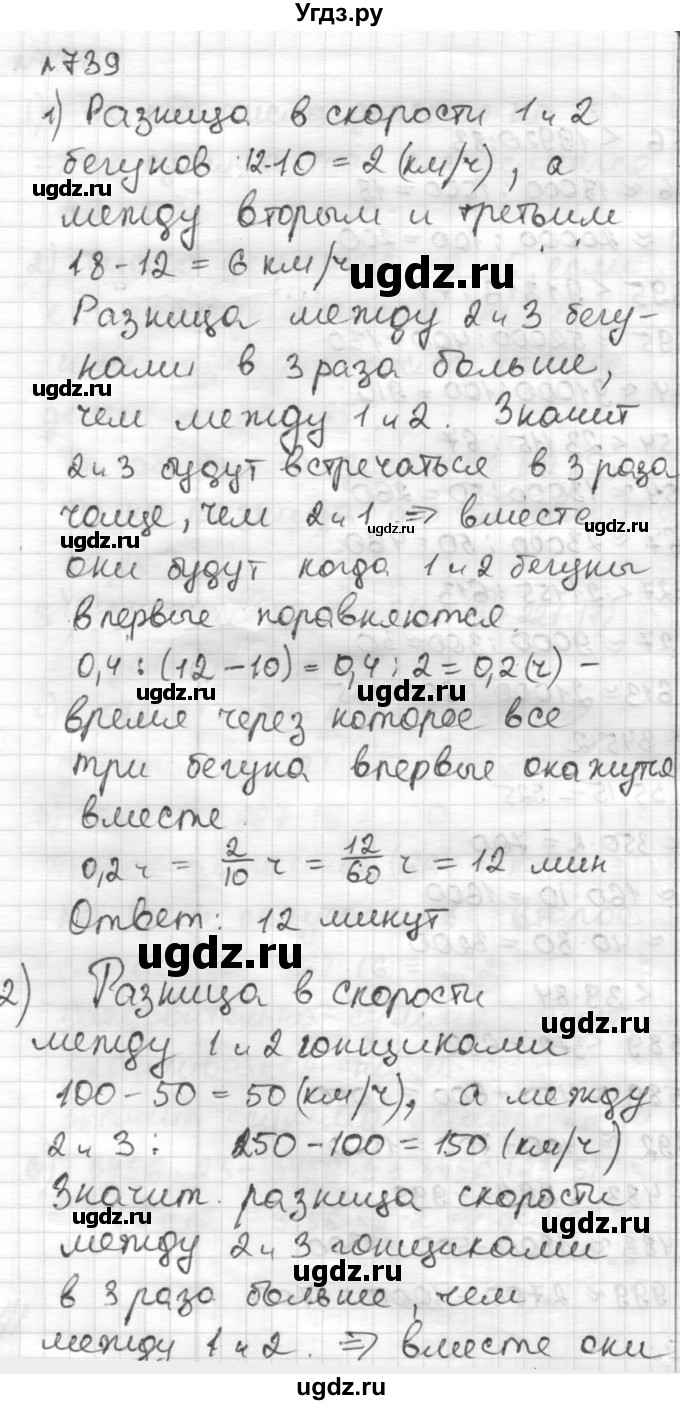 Угдз.ру
№739
1) Разница в скорости 1 и 2
бегунов 12-10 = 2 (км/ч), а
между вторым и третьим
18 - 12 = 6 км/ч
Разница между 2 и 3 бегу-
нами в 3 раза больше,
чем между 1 и 2. Значит
2 и 3 будут встречаться в 3 раза
чаще, чем 2 и 1 ⇒ вместе
они будут когда 1 и 2 бегуны
впервые поравняются
0,4 : (12 - 10) = 0,4 : 2 = 0,2 (ч) -
время через которое все
три бегуна впервые окажутся
вместе.
0,2 ч = 2/10 ч = 12/60 ч = 12 мин
Ответ: 12 минут
2) Разница в скорости
между 1 и 2 гонщиками
100 - 50 = 50 (км/ч), а между
2 и 3: 250 - 100 = 150 (км/ч)
Значит разница скорости
между 2 и 3 гонщиками
в 3 раза больше, чем
между 1 и 2. ⇒ вместе они
ugdz.ru